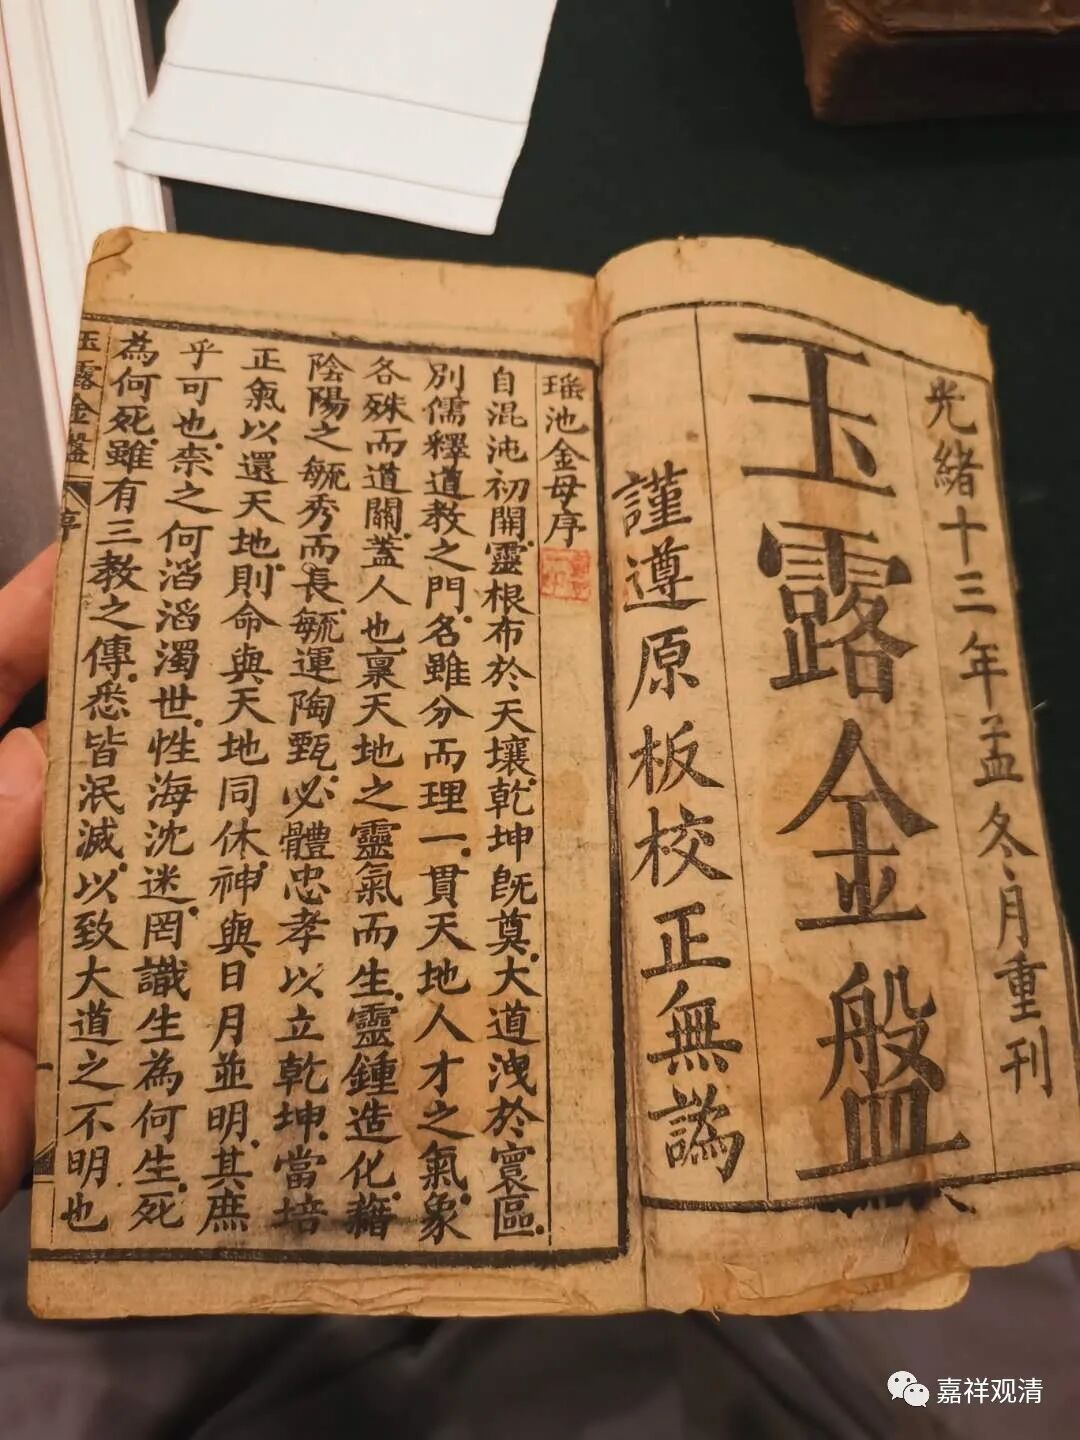 光緒十三年孟冬月重刊
玉露金盤
謹遵原板校正無譌
瑤池金母序
自混沌初開靈根布於天壤乾坤旣奠大道洩於寰區
別儒釋道教之門名雖分而理一貫天地人才之氣象
各殊而道關蓋人也禀天地之靈氣而生靈鍾造化藉
陰陽之毓秀而長毓運陶甄必體忠孝以立乾坤當培
正氣以還天地則命與天地同休神與日月並明其庶
乎可也柰之何滔滔濁世性海沈迷罔識生為何生死
為何死雖有三教之傳悉皆泯滅以致大道之不明也
玉露金盤 序 一
嘉祥观清